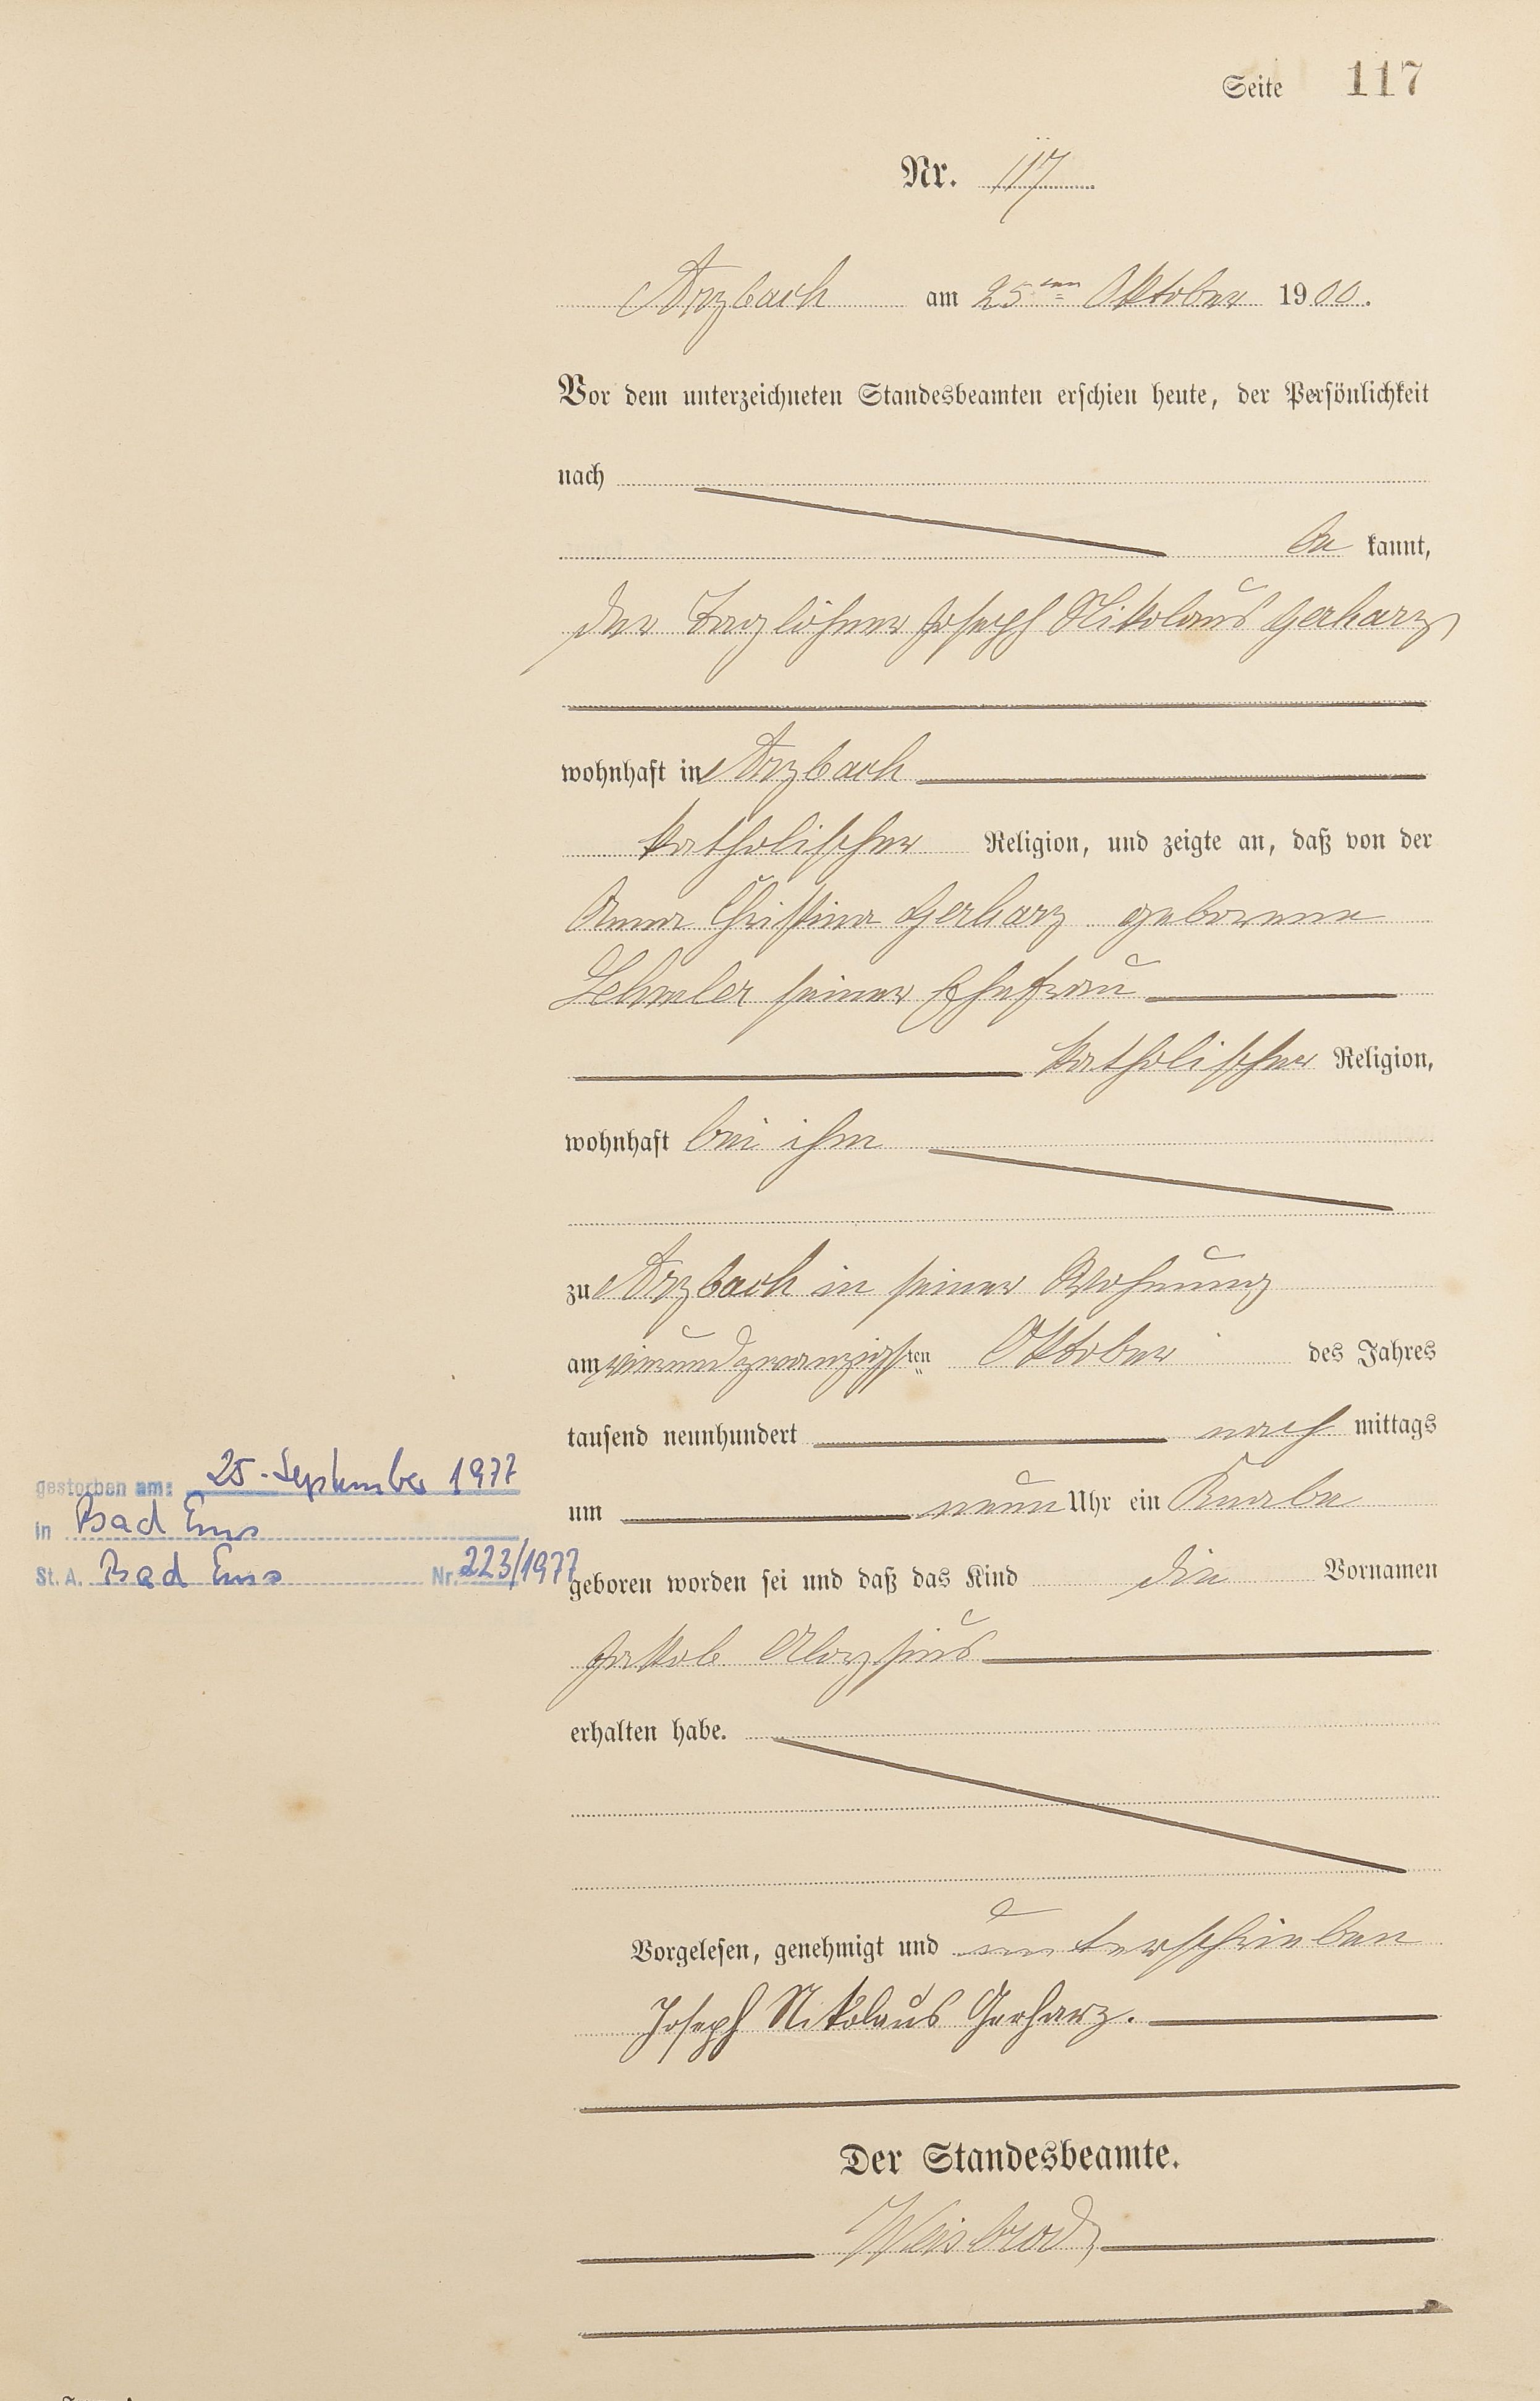 Seite 117
Nr. 117
Arzbach am 25ten Oktober 1900.
Vor dem unterzeichneten Standesbeamten erschien heute, der Persönlichkeit
nach
be kannt,
der Taglöhner Joseph Nikolaus Gerharz
wohnhaft in Arzbach
katholischer Religion, und zeigte an, daß von der
Anna Christina Gerharz geborene
Lehmler seiner Ehefrau
katholischer Religion,
wohnhaft bei ihm
zu Arzbach in seiner Wohnung
am vierundzwanzigsten Oktober des Jahres
tausend neunhundert nach mittags
um neun Uhr ein Knabe
geboren worden sei und daß das Kind die Vornamen
Jakob Aloysius
erhalten habe.
Vorgelesen, genehmigt und unterschrieben
Joseph Nikolaus Gerharz.
Der Standesbeamte.
Weisbrod
gestorben am: 25. September 1977
in Bad Ems
St. A. Bad Ems Nr. 223/1977